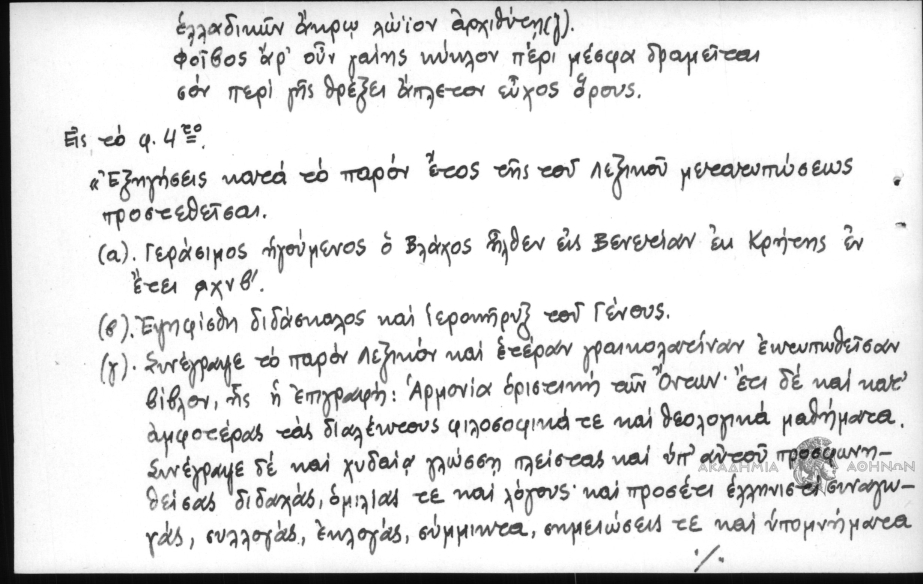 ἑλλαδικῶν ἄκρῳ λώϊον ἀρχιθύτῃ(ζ).
Φοῖβος ἄρ' οὖν γαίης κύκλον πέρι μέσφα δραμεῖται
σόν περὶ γῆς θρέξει ἄπλετον εὖχος ὅρους.
Εἰς τὸ φ. 4το.
«Ἐξηγήσεις κατά τὸ παρόν ἔτος τῆς τοῦ Λεξικοῦ μετατυπώσεως
προστεθεῖσαι.
(α). Γεράσιμος ἡγούμενος ὁ Βλάχος ἦλθεν εἰς Βενετίαν ἐκ Κρήτης ἐν
ἔτει αχνβ'.
(β). Ἐψηφίσθη διδάσκαλος καί ἱεροκῆρυξ τοῦ Γένους.
(γ). Συνέγραψε τὸ παρόν Λεξικόν καί ἑτέραν γραικολατίναν ἐκτυπωθεῖσαν
βίβλον, ἧς ἡ ἐπιγραφή: Ἁρμονία ὁριστική τῶν Ὄντων· ἔτι δέ καί κατ'
ἀμφοτέρας τάς διαλέκτους φιλοσοφικά τε καί θεολογικά μαθήματα.
Συνέγραψε δέ καί χυδαίᾳ γλώσσῃ πλείστας καί ὑπ' αὐτοῦ προσφωνη-
θείσας διδαχάς, ὁμιλίας τε καί λόγους· καί προσέτι ἑλληνιστί συναγω-
γάς, συλλογάς, ἐκλογάς, σύμμικτα, σημειώσεις τε καί ὑπομνήματα
./.
ΑΚΑΔΗΜΙΑ ΑΘΗΝΩΝ